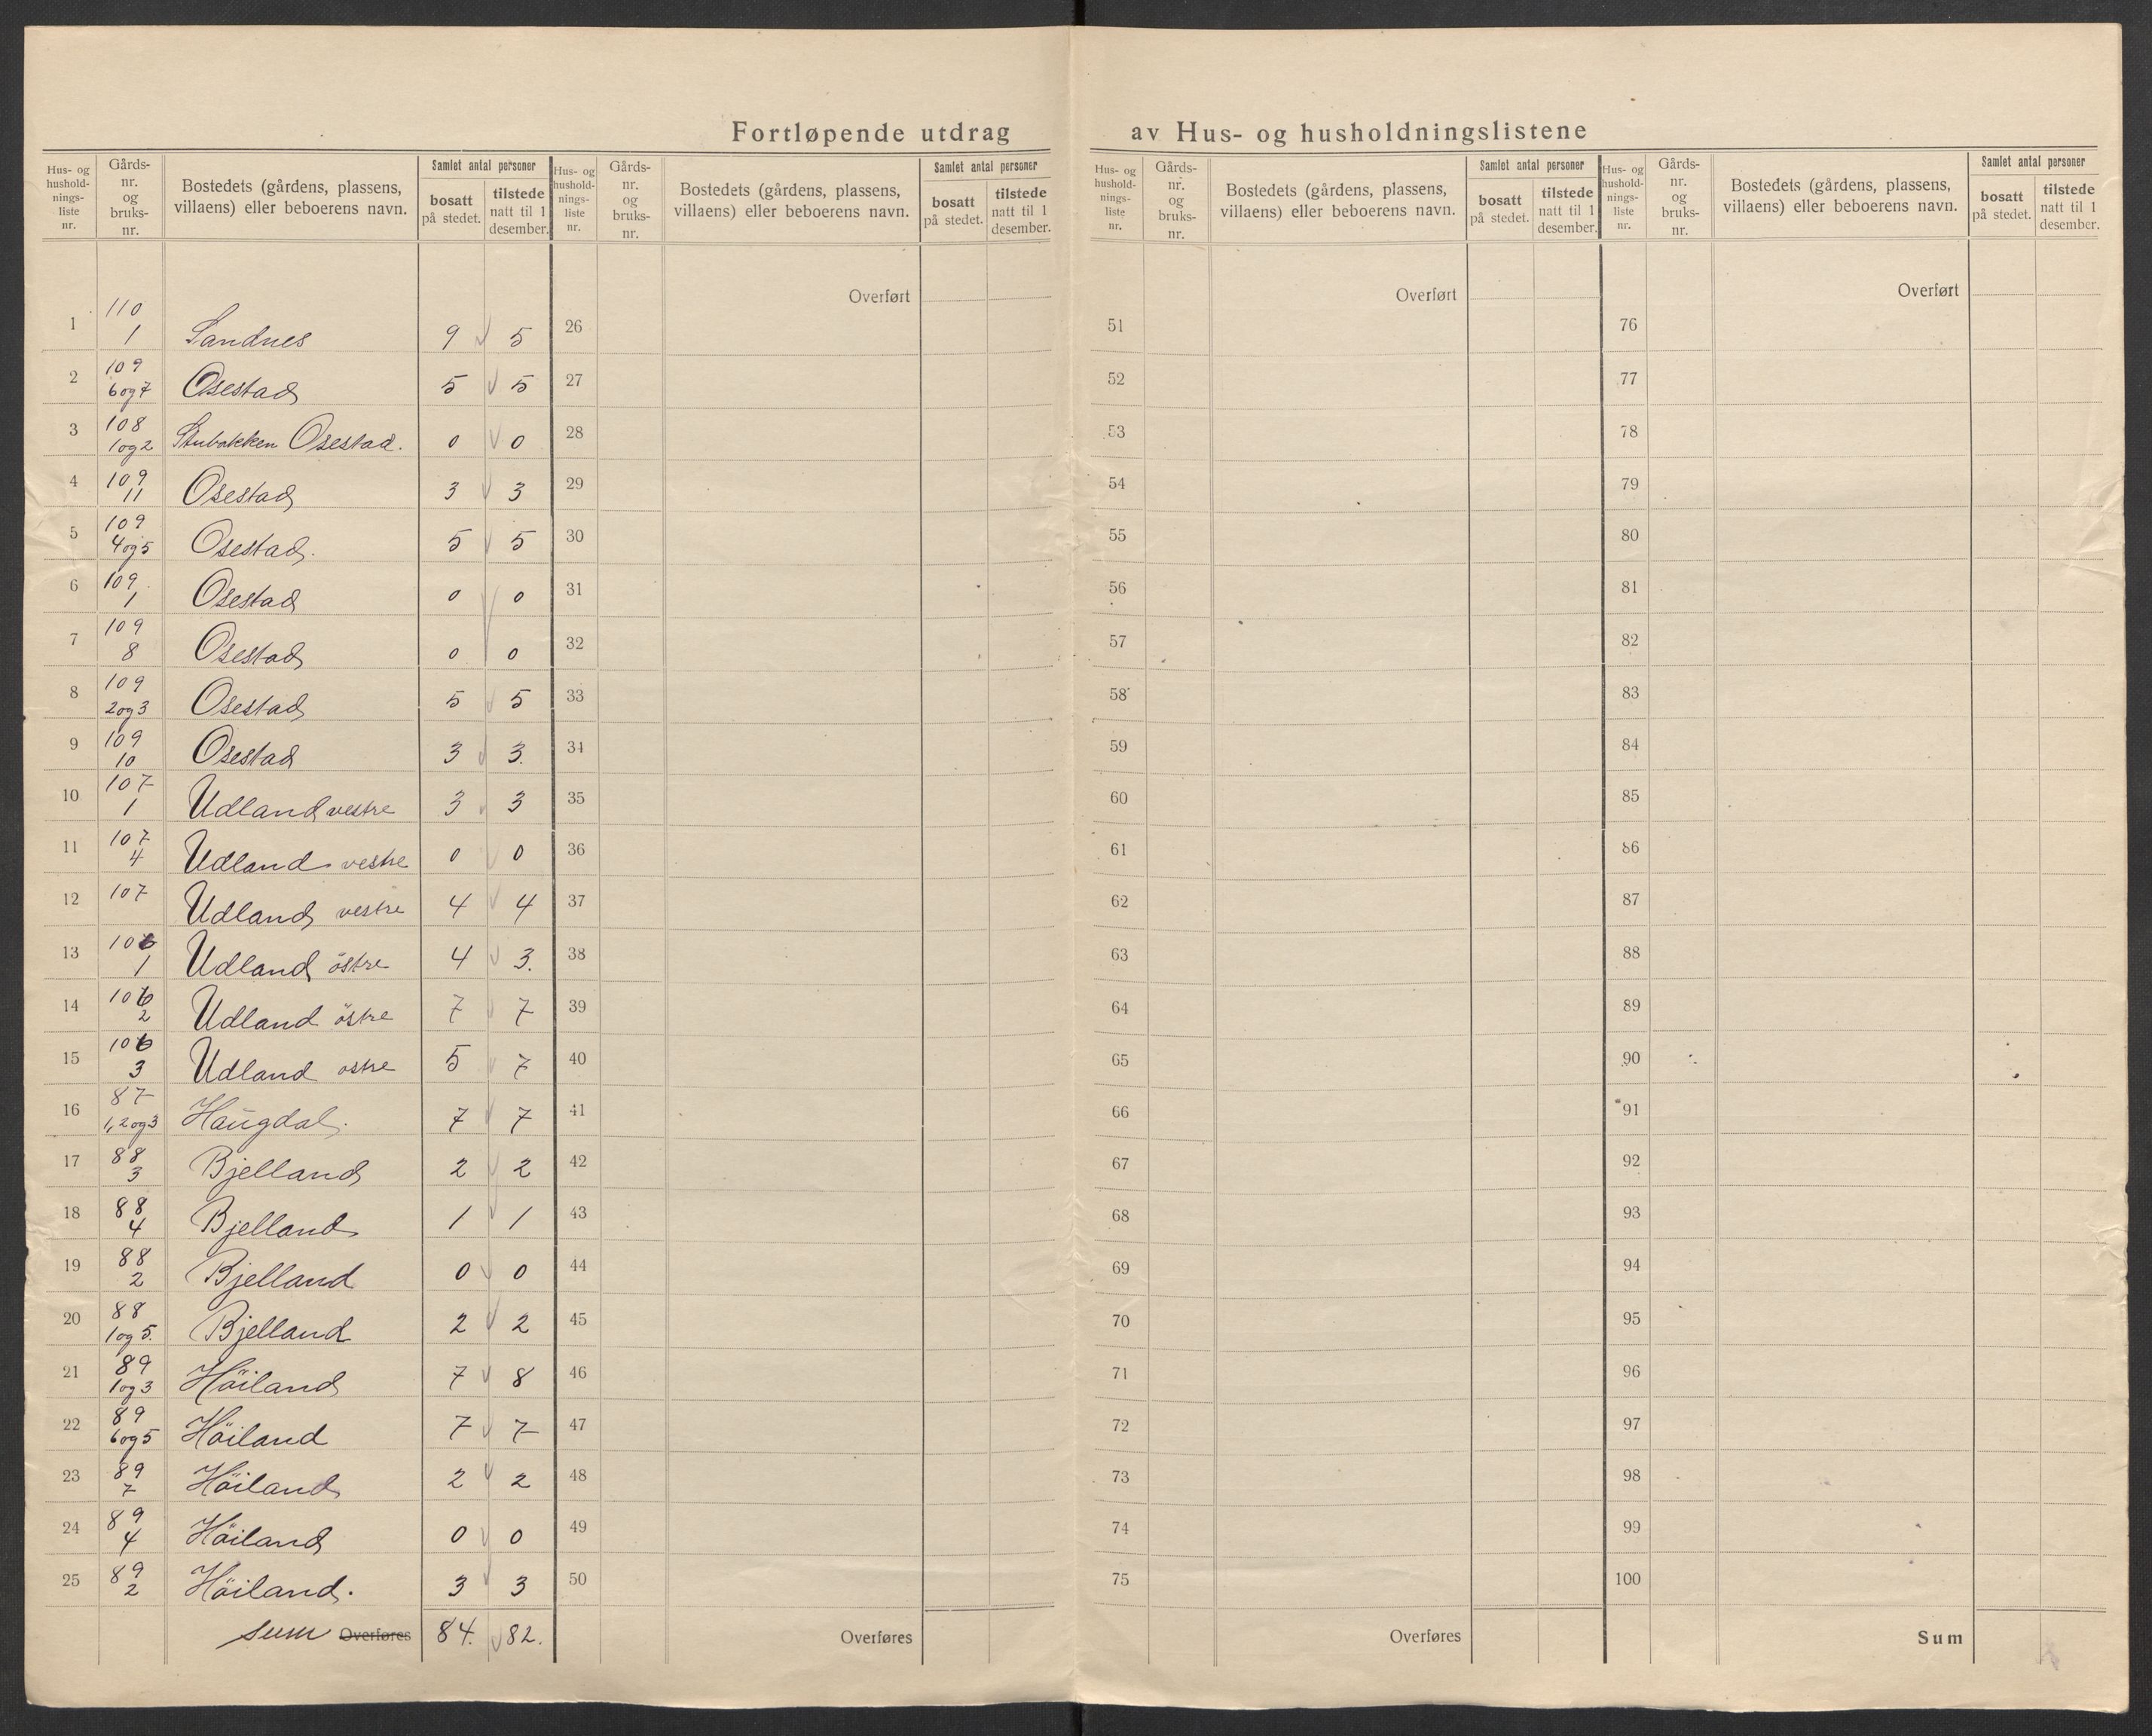 Fortløpende utdrag av Hus- og husholdningslistene
Hus- og hushold-nings-liste nr. Gårds-nr. og bruks-nr. Bostedets (gårdens, plassens, villaens) eller beboerens navn. Samlet antal personer bosatt på stedet. tilstede natt til 1 desember.
1 110 1 Sandnes 9 5
2 109 6 og 7 Osestad 5 5
3 108 1 og 2 Stubakken Osestad. 0 0
4 109 11 Osestad 3 3
5 109 4 og 5 Osestad. 5 5
6 109 1 Osestad 0 0
7 109 8 Osestad 0 0
8 109 2 og 3 Osestad 5 5
9 109 10 Osestad 3 3.
10 107 1 Udland vestre 3 3
11 107 4 Udland vestre 0 0
12 107 Udland vestre 4 4
13 106 1 Udland östre 4 3.
14 106 2 Udland östre 7 7
15 106 3 Udland ostre 5 7
16 87 1, 2 og 3 Haugdal. 7 7
17 88 3 Bjelland 2 2
18 88 4 Bjelland 1 1
19 88 2 Bjelland 0 0
20 88 1 og 5. Bjelland 2 2
21 89 1 og 3 Höiland 7 8
22 89 6 og 5 Höiland 7 7
23 89 7 Höiland 2 2
24 89 4 Höiland 0 0
25 89 2 Höiland. 3 3
sum Overføres 84. 82.
Hus- og hushold-nings-liste nr. Gårds-nr. og bruks-nr. Bostedets (gårdens, plassens, villaens) eller beboerens navn. Samlet antal personer bosatt på stedet. tilstede natt til 1 desember.
Overført
26
27
28
29
30
31
32
33
34
35
36
37
38
39
40
41
42
43
44
45
46
47
48
49
50
Overføres
Hus- og hushold-nings-liste nr. Gårds-nr. og bruks-nr. Bostedets (gårdens, plassens, villaens) eller beboerens navn. Samlet antal personer bosatt på stedet. tilstede natt til 1 desember.
Overført
51
52
53
54
55
56
57
58
59
60
61
62
63
64
65
66
67
68
69
70
71
72
73
74
75
Overføres
Hus- og hushold-nings-liste nr. Gårds-nr. og bruks-nr. Bostedets (gårdens, plassens, villaens) eller beboerens navn. Samlet antal personer bosatt på stedet. tilstede natt til 1 desember.
Overført
76
77
78
79
80
81
82
83
84
85
86
87
88
89
90
91
92
93
94
95
96
97
98
99
100
Sum